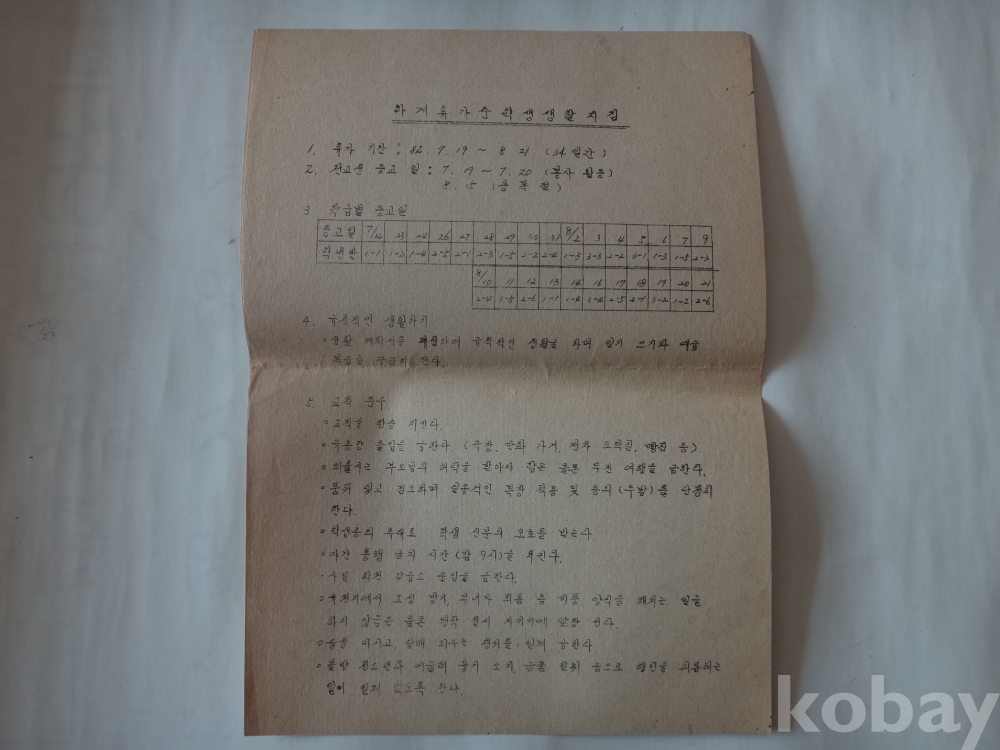 하계휴가중학생생활지침
1. 휴가 기간 : 82. 7. 19 ~ 8 21 (34일간)
2. 전교생 등교 일 : 7. 19 ~ 7. 20 (봉사 활동)
8. 15 (광복절)
3 학급별 등교일
등교일 7/22 23 24 26 27 28 29 30 31 8/2 3 4 5 6 7 9
학년반 1-1 1-2 1-4 2-5 2-1 2-3 1-5 2-2 2-4 1-3 3-3 2-2 3-1 1-3 1-5 2-3
8/10 11 12 13 14 16 17 18 19 20 21
2-4 3-5 2-6 1-1 1-4 3-4 2-5 2-1 3-2 1-2 2-6
4. 규칙적인 생활하기
○생활 계획서를 작성하여 규칙적인 생활을 하며 일기 쓰기와 예습
복습을 한다.
5. 교칙 준수
○교칙을 항상 지킨다.
○출입을 금한다 (극장, 만화 가게, 전자 오락실, 등)
○외출시는 부모님의 허락을 받아야 함은 물론 무전 여행을 금한다.
○품위 있고 검소하며 실용적인 복장 착용 및 용의 (두발)를 단정히
한다.
○학생증의 휴대로 학생 신분의 보호를 받는다
○야간 통행 금지 시간 (밤 9시)을 지킨다.
금한다.
고성 방가, 등 미풍 양속을 해치는 일을
하지 않음은 물론 질서 지키기에 앞장 선다.
○술을 마시고, 담배 피우는 행위를 일체 금한다
○불량 청소년과 어울려 흉기 소지, 금품 등으로 행인을 괴롭히는
일이 일체 없도록 한다.
kobay